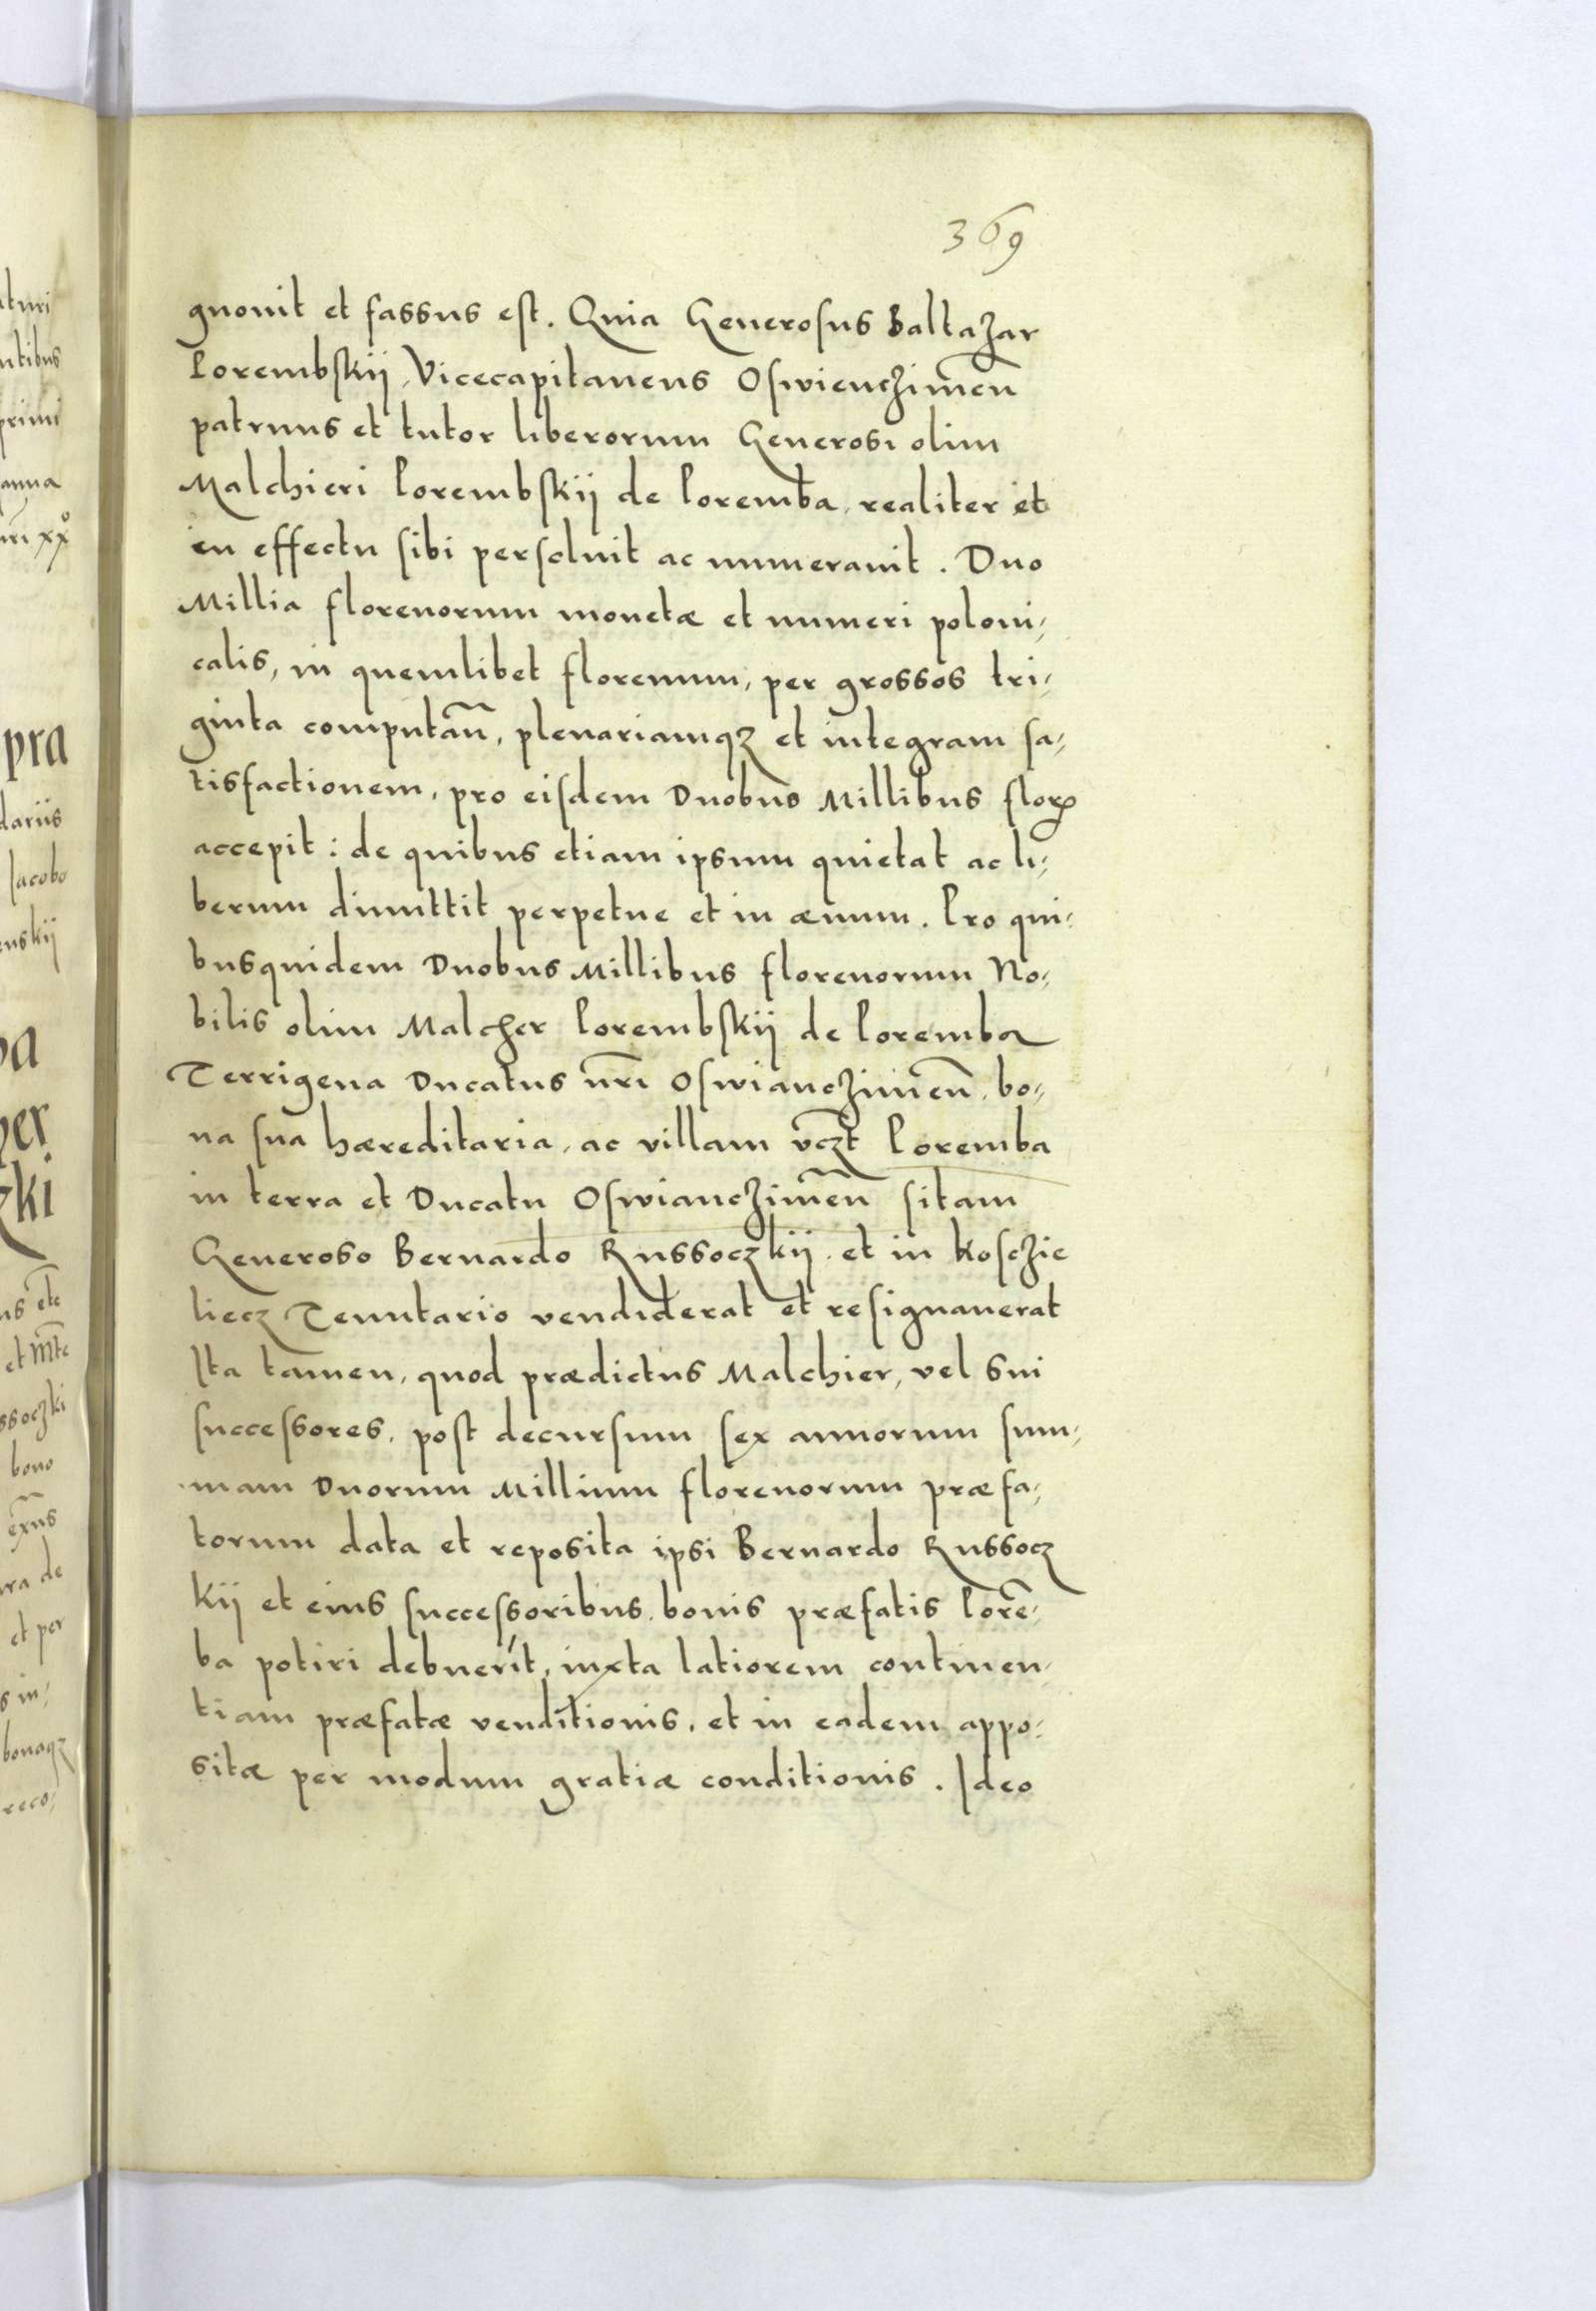 369
gnouit et fassus est. Quia Generosus Baltazar
Porembskij, Vicecapitaneus Oswienczimen̄
patruus et tutor liberorum Generosi olim
Malchieri Porembskij de Poremba, realiter et
in effectu sibi persoluit ac numerauit. Duo
Millia florenorum monetæ et numeri poloni,
calis, in quemlibet florenum, per grossos tri,
ginta computan̄, plenariamqꝫ et integram sa,
tisfactionem, pro eisdem Duobus Millibus floꝝ
accepit: de quibus etiam ipsum quietat ac li,
berum dimittit perpetue et in æuum. Pro qui,
busquidem Duobus Millibus florenorum No,
bilis olim Malcher Porembskij de Poremba
Terrigena Ducatus nr̄i Oswianczimen̄, bo,
na sua hæreditaria, ac villam vcꝫt Poremba
in terra et Ducatu Oswianczimen̄ sitam
Generoso Bernardo Russoczkij, et in Kosczie
liecz Tenutario vendiderat et resignauerat
Ita tamen, quod prædictus Malchier, vel sui
successores, post decursum sex annorum sum,
mam Duorum Millium florenorum præfa,
torum data et reposita ipsi Bernardo Russocz
kij et eius successoribus, bonis præfatis Porē,
ba potiri debuerit, iuxta latiorem continen,
tiam præfatæ venditionis, et in eadem appo,
sitæ per modum gratiæ conditionis. Ideo
pra
dariis
Jacobo
enskij
ba
her
zki
et per
bonaqꝫ
reco,